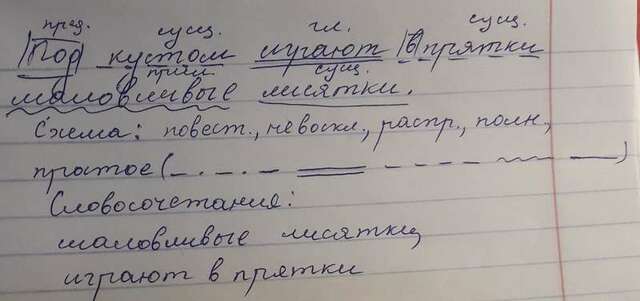 пред. сущ. гл. сущ.
Под кустом играют в прятки
прил. сущ.
шаловливые лисятки.
Схема: повест., невоскл., распр., полн,
простое (
Словосочетания:
шаловливые лисятки,
играют в прятки